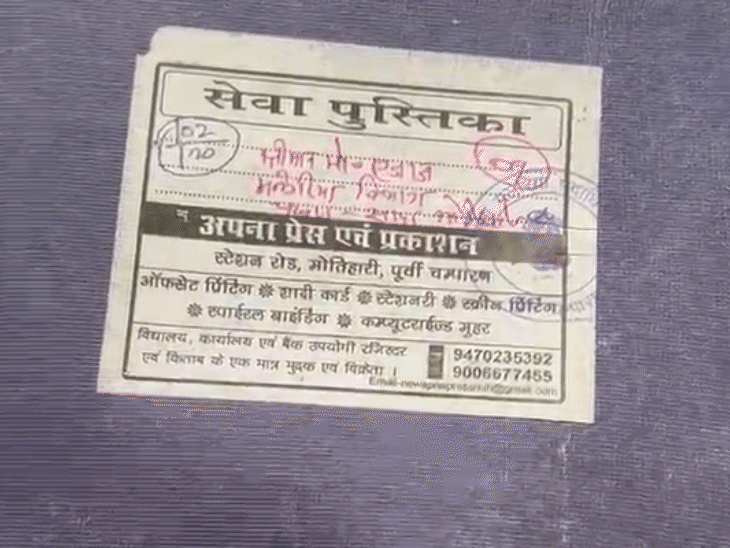 सेवा पुस्तिका
02
120
श्रीमान मो-एजाज
मलेरिया विभाग
न अपना प्रेस एवं प्रकाशन
स्टेशन रोड, मोतिहारी, पूर्वी चम्पारण
ऑफसेट प्रिंटिंग ❋ शादी कार्ड ❋ स्टेशनरी ❋ स्क्रीन प्रिंटिंग
❋ स्पाईरल बाइंडिंग ❋ कम्प्यूटराईज्ड मुहर
विद्यालय, कार्यालय एवं बैंक उपयोगी रजिस्टर
एवं किताब के एक मात्र मुद्रक एवं विक्रेता ।
9470235392
9006677455